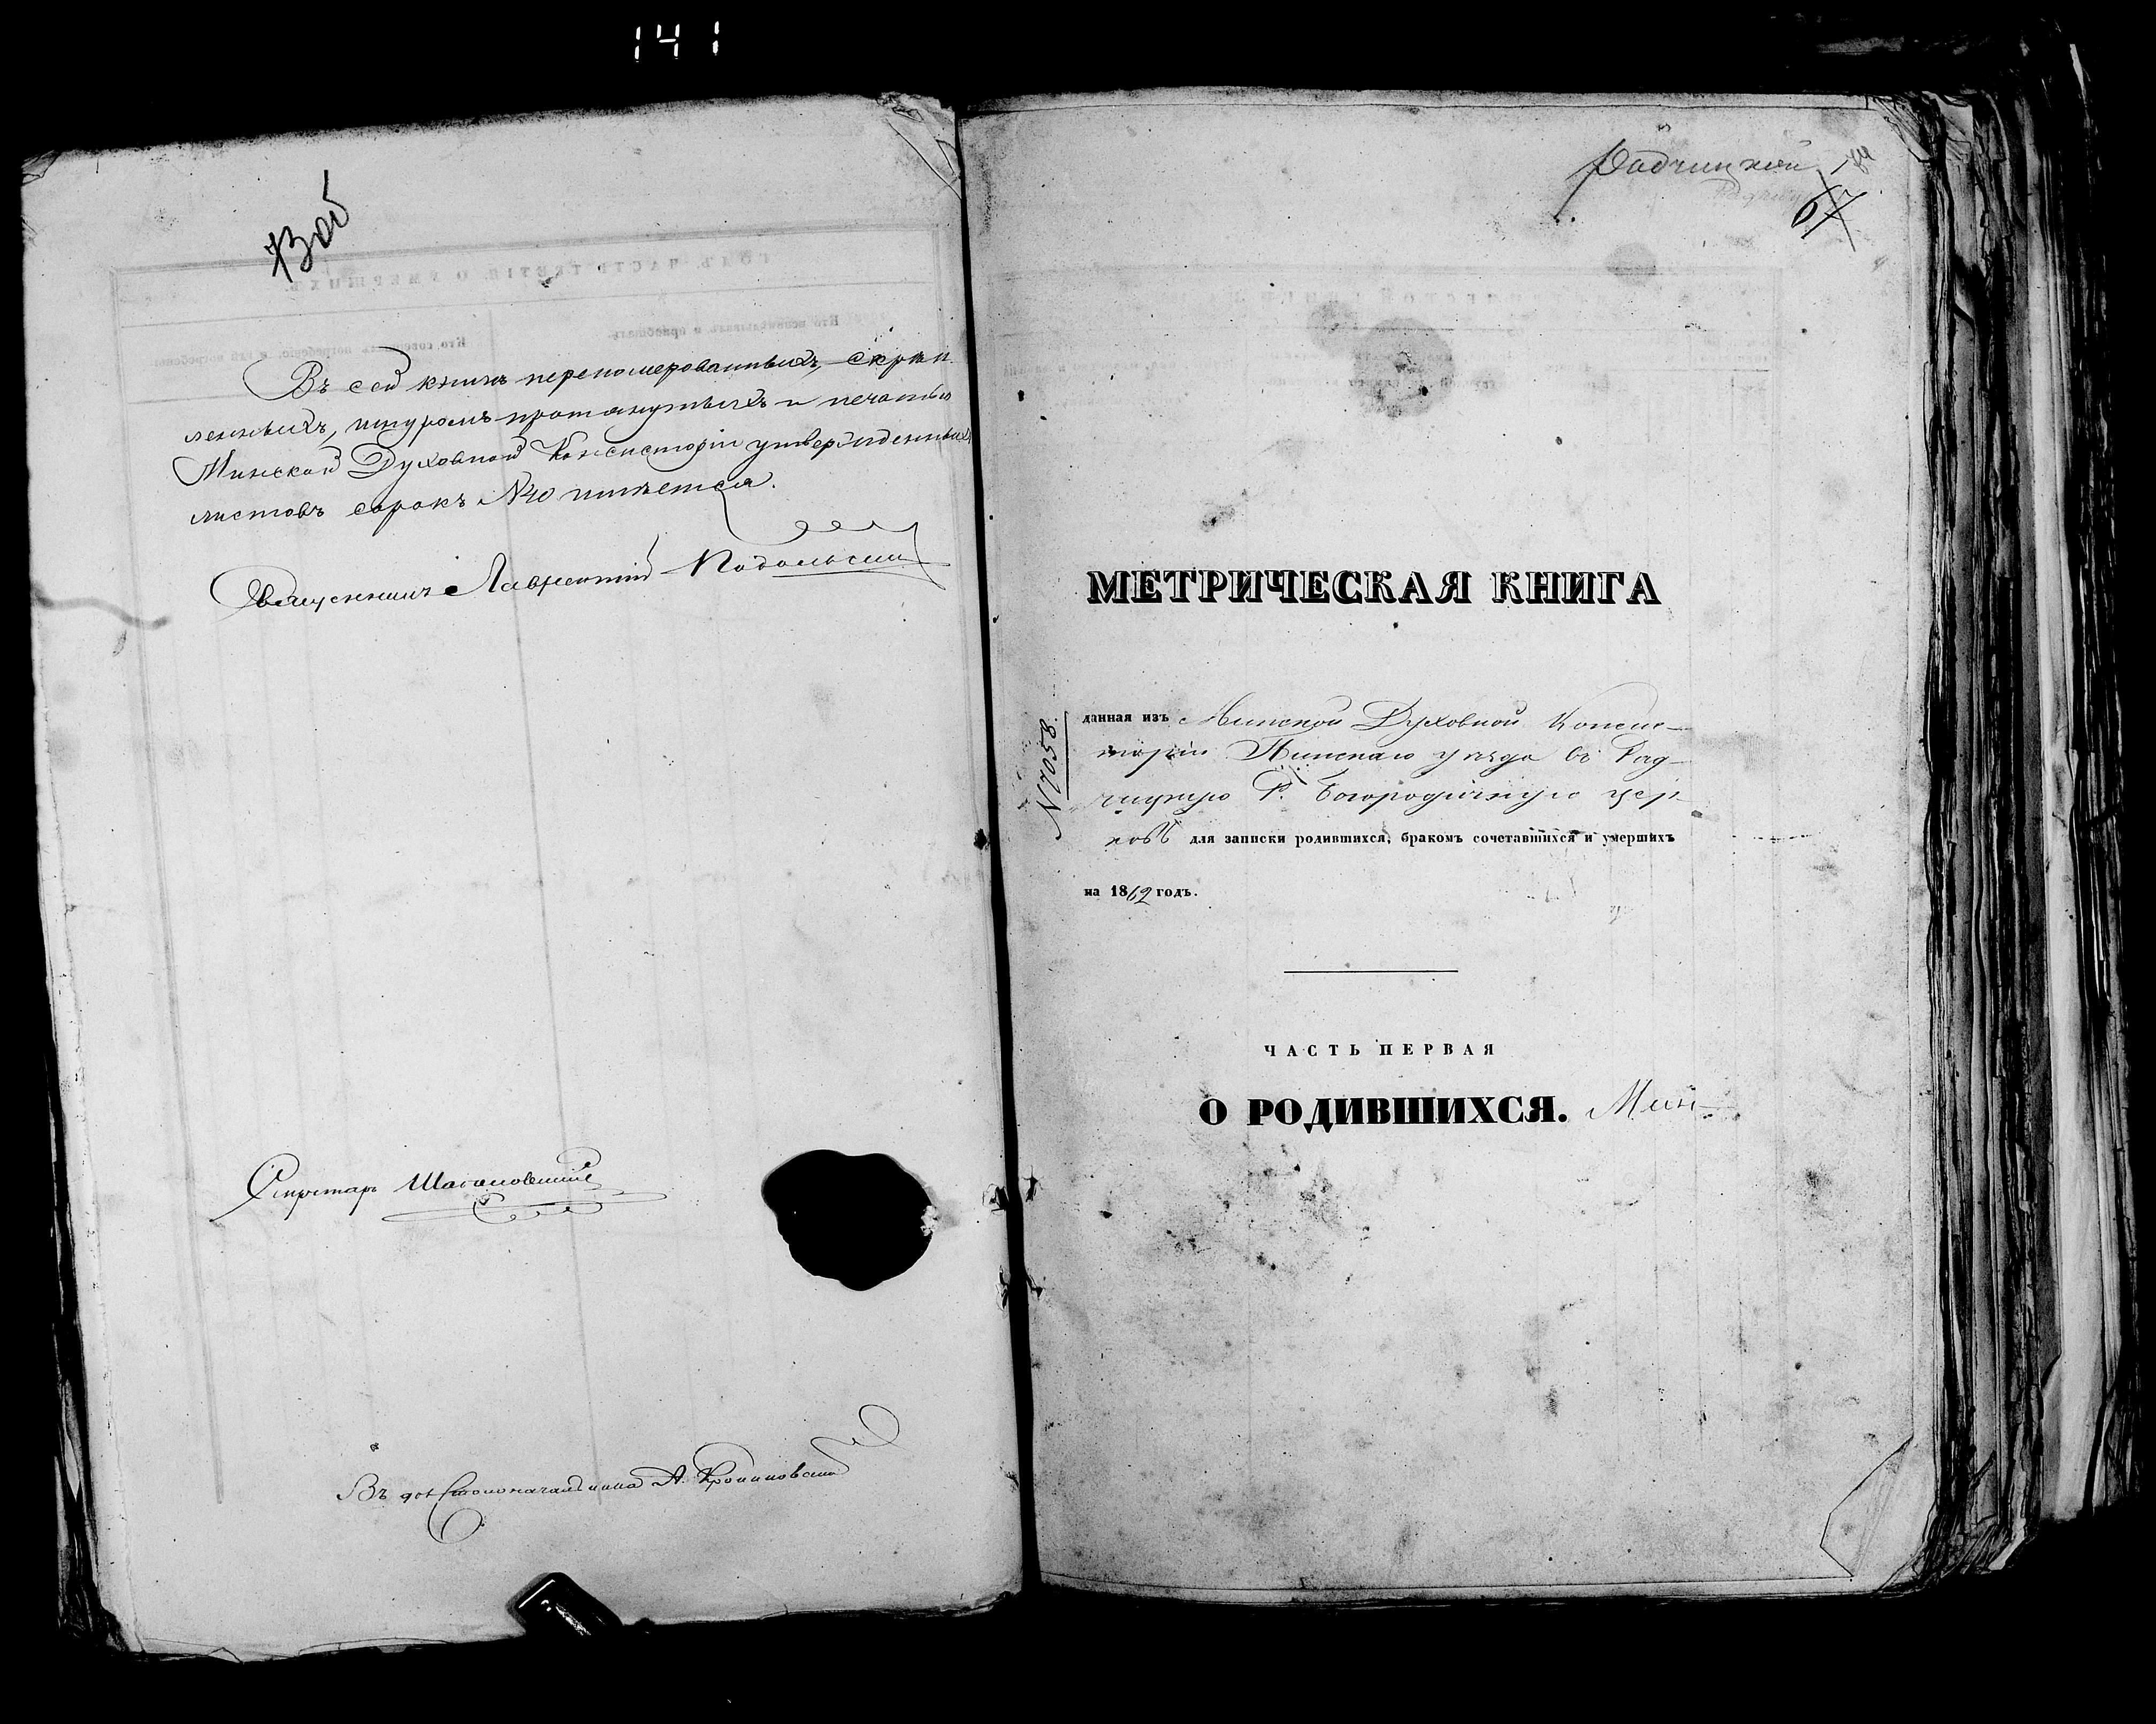 141
73 об
Въ сей книгѣ перенумерованныхъ, скрѣп
ленныхъ, шнуромъ протянутыхъ и печатью
Минской Духовной Консисторіи утвержденныхъ
листовъ сорокъ №40 имѣется.
Священникъ Лаврентій Подольскій
Секретарь
В. д. Столоначальника А.
Радчицкой
67
МЕТРИЧЕСКАЯ КНИГА
№7058.
данная изъ Минской Духовной Консис-
торіи Пинскаго уѣзда въ Рад-
чицкую Р. Богородичную цер-
ковь для записки родившихся, бракомъ сочетавшихся и умершихъ
на 1862 годъ.
ЧАСТЬ ПЕРВАЯ
О РОДИВШИХСЯ. Мин-